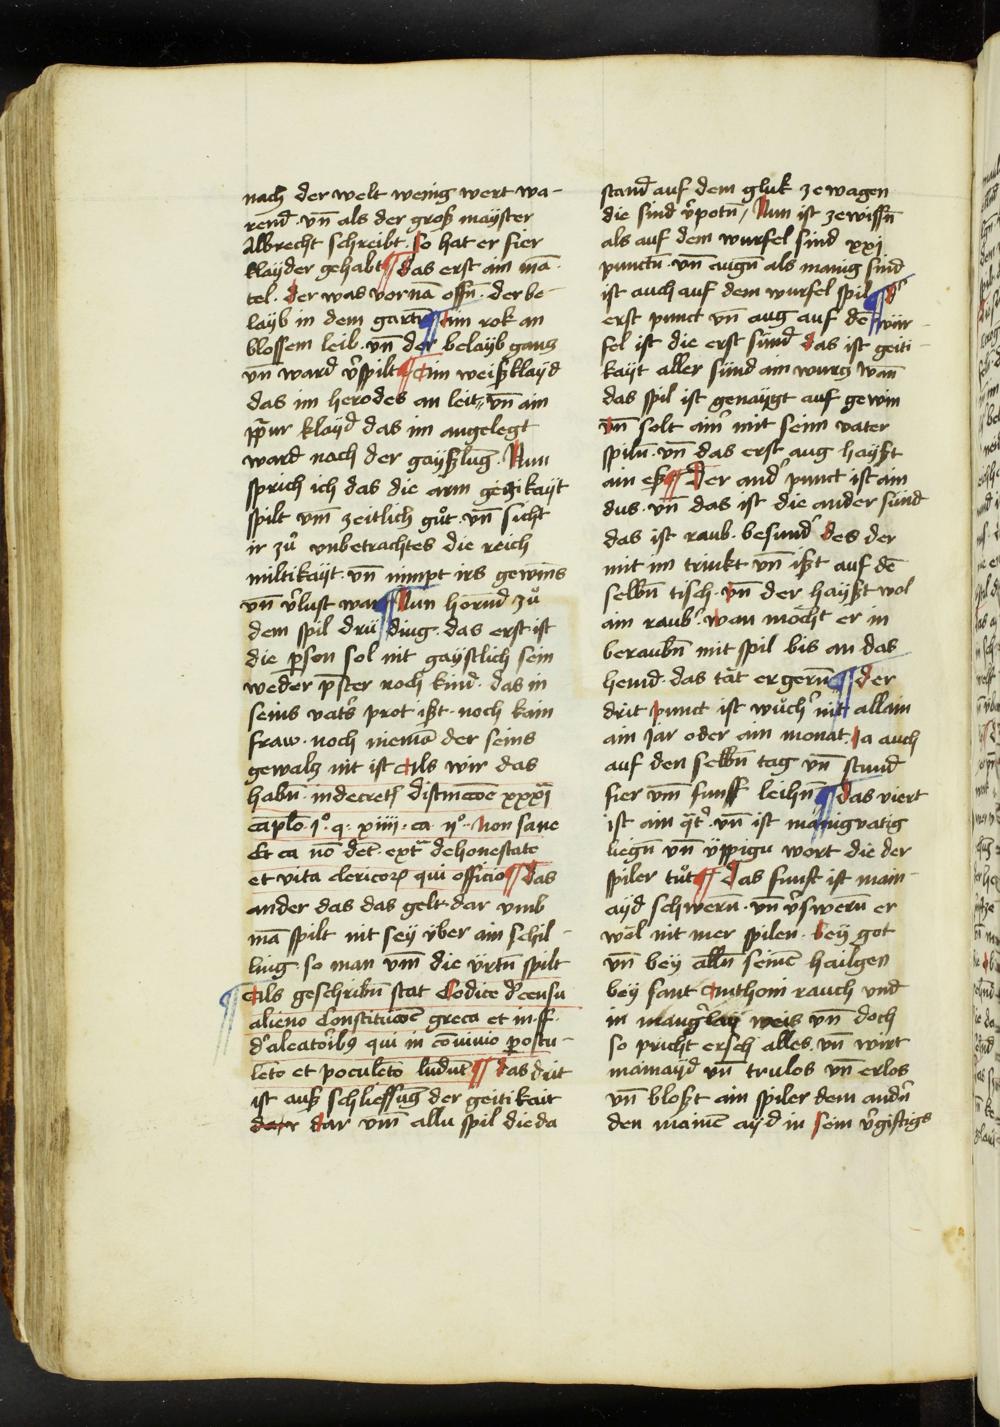 nach der welt wenig wert wa-
rend̄ · vn̄ als der groß mayster
Albrecht schreibt · so hat er fier
klayder gehabt ¶ das erst ain mā-
tel · der was vornā offn̄ · der be-
layb in dem gartn̄ ¶ Ain rok an
blossem leib · vn̄ der belayb gancz
vn̄ ward v̓spilt ¶ Ain weiß klayd
das im herodes an leit · vn̄ ain
klayd das im angelegt
ward nach der gayßlūg · Nun
sprich ich das die arm geitzikayt
spilt vm̄ zeitlich gůt · vn̄ sicht
ir zů vnbetrachtes die reich
miltikayt · vn̄ nimpt irs gewins
vn̄ v̓lust war ¶ Nun hörn̄d zů
dem spil drü ding · das erst ist
die pson sol nit gaystlich sein
weder pster noch kind · das in
seins vatˢ prot ißt · noch kain
fraw · noch niemā der seins
gewaltz nit ist Als wir das
habn̄ · in decretꝭ distinccōe xxxꝟ
caplō · jº · q · xiiij · ca · ijº · Non sane
Et ca nō d̄et · ext̄ dehonestate
et vita clericoꝝ qui officio ¶ das
ander das das gelt · dar vmb
mā spilt nit sey v̈ber ain schil-
ling · so man vm̄ die v̈rtn̄ spilt
¶ Als geschribn̄ stat Codice d̓censu
alieno Constitucōe greca et in · ff ·
d̓aleatoribꝫ qui in cōuiuio postu-
leto et poculēto ludūt ¶ das drit
ist auß schliessūg der geitikait
dar vm̄ allu spil die da
stand̄ auf dem gluk ze wagen
die sind v̓potn̄ / Nun ist ze wissn̄
als auf dem wurfel sind xxj
punctn̄ · vn̄ augn̄ als manig sind̄
ist auch auf dem wurfel spil ¶ d̓
erst punct vn̄ aug auf dē wür-
fel ist die erst sünd̄ das ist geiti-
kayt aller sünd ain wurcz wan̄
das spil ist genaygt auf gewin
vn̄ solt ainˢ mit seim vater
spiln̄ · vn̄ das erst aug hayßt
ain eß ¶ Der and̓ punct ist ain
dus · vn̄ das ist die ander sünd
das ist raub · besund̓ des der
mit im trinkt vn̄ ißt auf dē
selbn̄ tisch · vn̄ der hayßt wol
ain raubˢ · wan möcht er in
beraubn̄ mit spil bis an das
hemd · das tät er gern̄ ¶ der
drit punct ist wůchˢ nit allain
ain jar oder ain monat · Ja auch
auf den selbn̄ tag vn̄ stund
fier vm̄ funff leihn̄ ¶ das viert
ist ain q̄tˢ · vn̄ ist manigualtig
liegn̄ vn̄ v̈ppigu wort die der
spiler tůt ¶ Das funft ist main-
ayd schwern̄ · vn̄ v̓swern̄ er
wöl nit mer spilen · bey got
vn̄ bey alln̄ seinē hailgen
bey sant Anthoni rauch vnd
in mangˢlay weis vn̄ doch
so pricht er sich alles · vn̄ wirt
mainayd̄ vn̄ trulos vn̄ erlos
vn̄ bloßt ain spiler dem andn̄
den mainē ayd in sein v̓giftigs